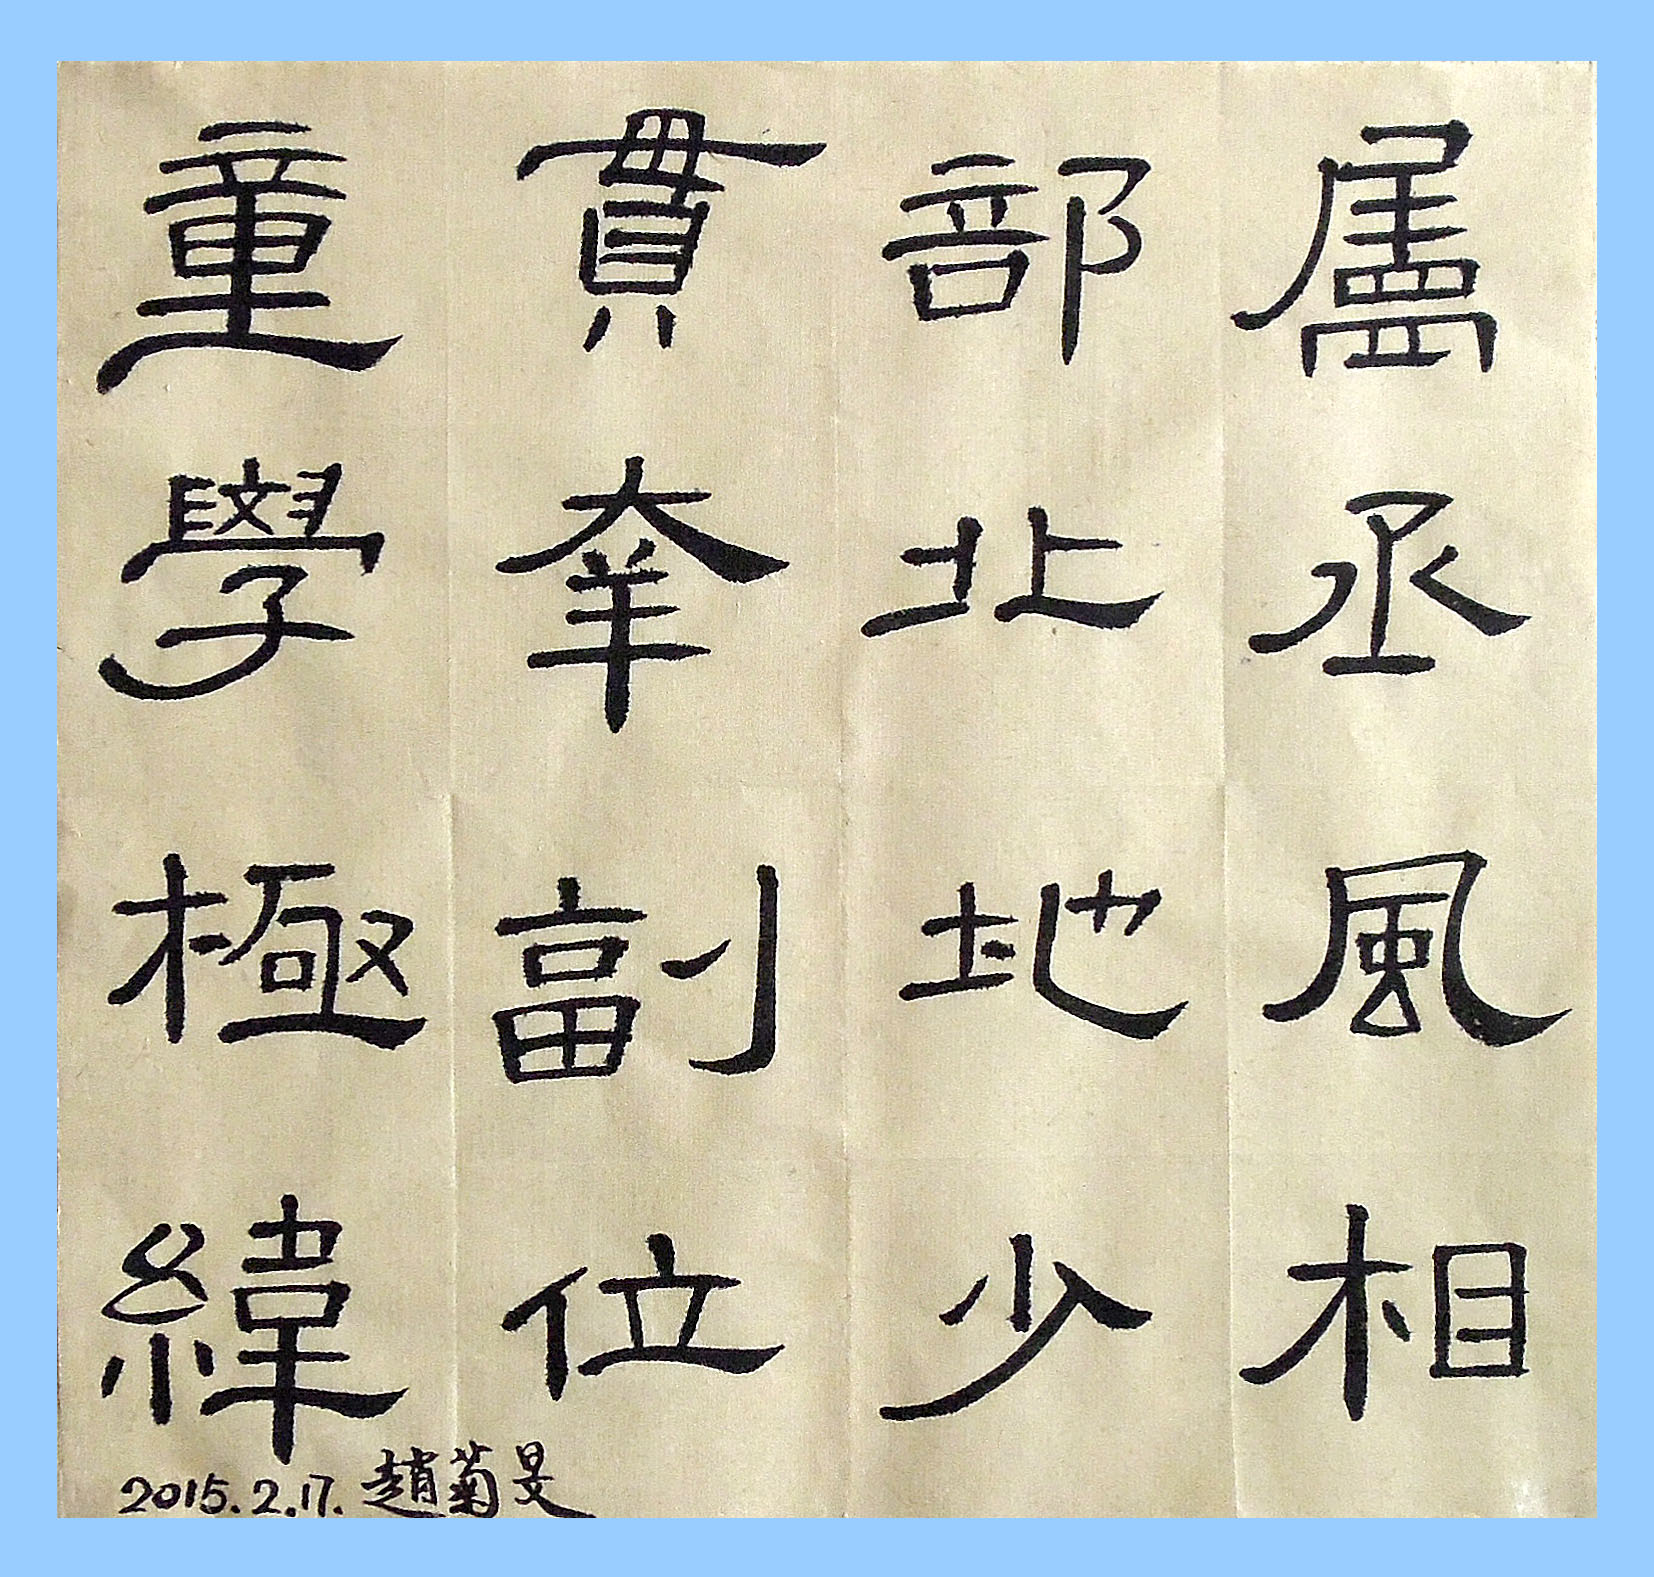 廬丞風相
部北地少
貫牽副位
童學極緯
2015.2.17. 趙菊旻